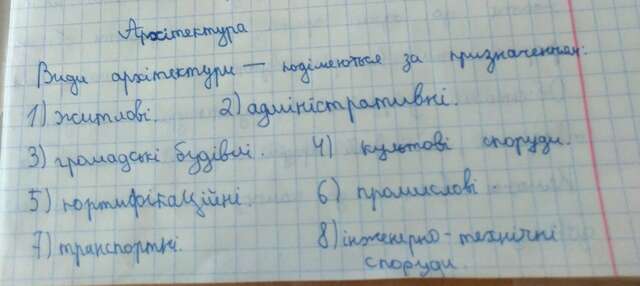 Архітектура
Види архітектури — поділяються за призначенням:
1) житлові. 2) адміністративні.
3) громадські будівлі. 4) культові споруди.
5) портифікаційні. 6) промислові
7) транспортні. 8) інженерно-технічні
споруди.